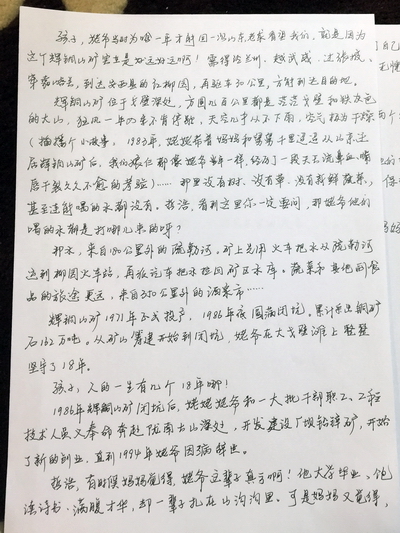 孩子，姥爷当时为啥一年才能回一次山东老家看望我们，就是因为
这个辉铜山矿实在是好远好远啊！需得途兰州、越武威、过张掖、
穿嘉峪关，到达安西县的红柳园，再驱车30公里，方能到达目的地。
辉铜山矿位于戈壁深处，方圆几百公里都是茫茫戈壁和铁灰色
的大山，狂风一年四季不肯停歇，天空几乎从不下雨，空气极为干燥
（插播个小故事，1983年，姥姥带着妈妈和舅舅千里迢迢从山东迁
居辉铜山矿后，我们娘仨都像姥爷当年一样，经历了一段天天流鼻血、嘴
唇干裂久久不愈的考验）……那里没有树、没有草、没有新鲜蔬菜，
甚至连能喝的水都没有。哲浩，看到这里你一定要问，那姥爷他们
喝的水都是打哪儿来的呀？
那水，来自180公里外的疏勒河。矿上先用火车把水从疏勒河
运到柳园火车站，再派汽车把水拉回矿区水库。蔬菜和其他副食
品的旅途更远，来自350公里外的酒泉市……
辉铜山矿1971年正式投产，1986年底因病闭坑。累计采出铜矿
石162万吨。从矿山筹建开始到闭坑，姥爷在大戈壁滩上整整
坚守了18年。
孩子，人的一生有几个18年哪！
1986年辉铜山矿闭坑后，姥姥姥爷和一大批干部职工、工程
技术人员又奉命奔赴陇南大山深处，开发建设厂坝铅锌矿，开始
了新的创业，直到1994年姥爷因病辞世。
哲浩，有时候妈妈觉得，姥爷这辈子真亏啊！他大学毕业、饱
读诗书、满腹才华，却一辈子扎在山沟沟里。可是妈妈又觉得，